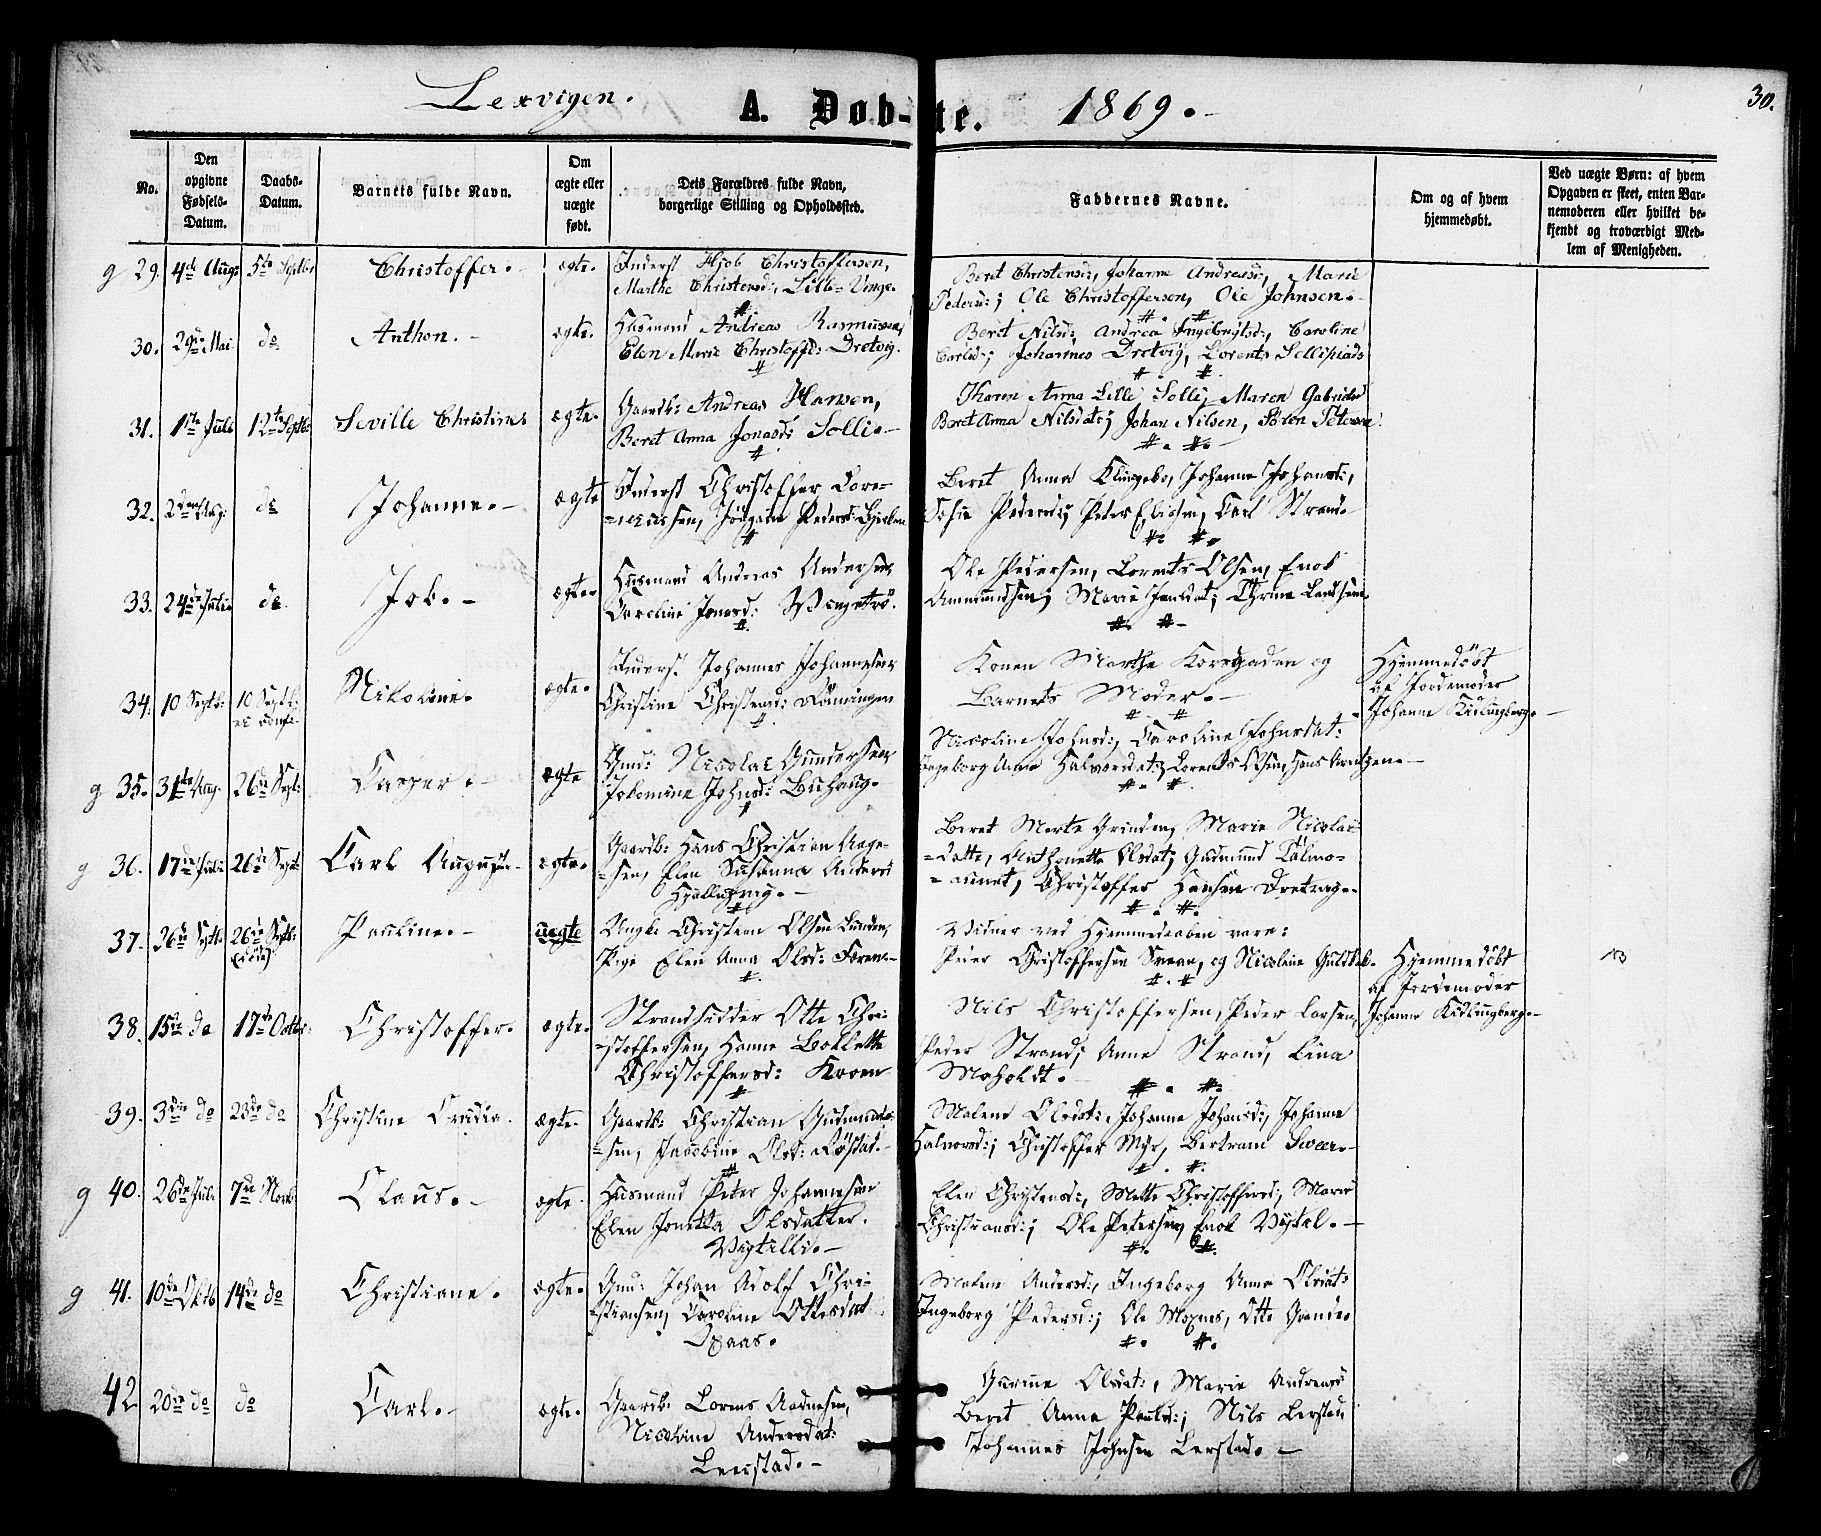 Lexvigen.
A. Døb-te. 1869.
30.
No.
Den opgivne Fødsels-Datum.
Daabs-Datum.
Barnets fulde Navn.
Om ægte eller uægte født.
Dets Forældres fulde Navn, borgerlige Stilling og Opholdssted.
Faddernes Navne.
Om og af hvem hjemmedøbt.
Ved uægte Børn: af hvem Opgaven er skeet, enten Barnemoderen eller hvilket bekjendt og troværdigt Medlem af Menigheden.
g 29. 4de Aug: 5te Septbr Christoffer. ægte. Inderst Hjob Christoffersen,
Marthe Christensd:, Lille-Vinge.
Beret Christensd:, Johanne Andreasd:, Marie
Pedersd:; Ole Christoffersen, Ole Johnsen.
30. 29de Mai do Anthon. ægte. Husmand Andreas Rasmussen,
Elen Marie Christoffd: Dretvig.
Beret Nilsd:, Andrea Ingebrigtsd:, Caroline
Carlsd:; Johannes Dretvig, Lorents
31. 1ste Juli 12te Septb: Seville Christine ægte. Gaardb: Andreas Hansen,
Beret Anna Jonasd: Solli.
Karen Anna Lille Solli, Maren Gabrielsd
Beret Anna Nilsdat:; Johan Nilsen, Sören Petersen.
32. 2den Aug: do Johanne. ægte Inderst Christoffer Lore-
Pedersd:
Beret Anna Klungebo, Johanne Johansd:,
Sofie Pedersd:; Peter Carl Strand.
33. 24de Julii do. Job. ægte. Husmand Andreas Andersen,
Caroline Jonasd: Vingetrö.
Ole Pedersen, Lorents Olsen, Enok
Ammundsen; Marie
34. 10 Septb: 10 Septb: Nikoline. ægte. Inderst. Johannes Johannesen,
Christine Christensd: Rönningen
Konen Marthe Korsgaden og
Barnets Moder.
Hjemmedöbt
af Jordemoder
Johanne Kidlingberg.
g 35. 31te Aug. 26de Sept: Casper. ægte Gmd: Nicolai Gundersen,
Jakomine Johnsd: Buhaug.
Nicoline Johnsd:, Caroline Johnsdat:
Ingeborg Anne Halvorsdat:; Lorents Olsen, Hans
g 36. 17de Juli: 26de Sept Carl August. ægte. Gaardb: Hans Christian Aage-
-sen, Elen Susanna Andersd
Beret Marta Grinden, Marie Nicolai-
-datte, Anthonette Olsdat; Gudmund Talmo-
Christoffer Hansen
37. 26de Septb. 26de Septb: Pauline. uægte Ungk: Christian Olsen
Pige Elen Anna Olsd:
Vidner ved Hjemmedaaben vare:
Peder Christoffersen Svean, og Nicoline
Hjemmedöbt
af Jordemoder
Johanne Kidlingberg.
38. 15de do 17de Octbr: Christoffer. ægte. Strandsidder Otte Chri-
-stoffersen, Hanne Bollette
Christoffersd:
Nils Christoffersen, Peder Larsen,
Peder Strand; Anne Strand, Lina
Moholdt.
39. 3die do 23de do Christine ægte. Gaardb: Christian Gudmund-
-sen, Jacobine Olsd: Röstad.
Malene Olsdat:, Johanne Johansd:, Johanne
Halvorsd:; Christoffer Myr, Bertram Sveer.
g 40. 26de Juli 7de Novb: Claus. ægte. Husmand Peter Johannesen
Elen Jonetta Olsdatter.
Vigtilli.
Elen Christensd:, Mette Christoffersd:, Marie
Christiansd:; Ole Petersen, Enok Vigtil.
g 41. 10de Oktb 14de do Christiane. ægte. Gmd: Johan Adolf Chri-
-stiansen, Caroline Ottesdat:
Opaas.
Malene Andersd:, Ingeborg Anne Olsdat:
Ingeborg Pedersd:; Ole Moxnes, Otte Grande.
42 20de do do Carl. ægte. Gaardb: Lorens Aadnesen,
Nicoline Andersdat:
Leerstad.
Gurine Olsdat:, Marie Andreasd
Beret Anna Paulsd:; Nils Lerstad,
Johannes Johnsen Lerstad.